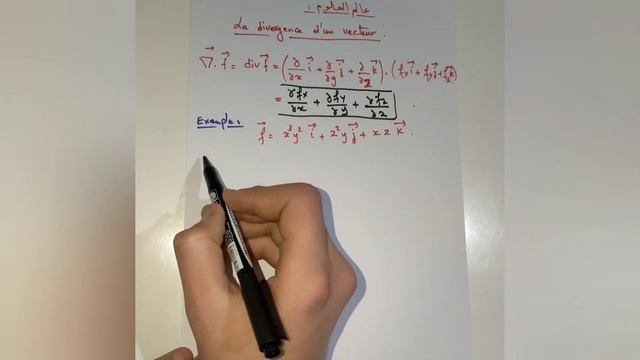 عالم العلوم:
La divergence d'un vecteur.
∇⃗. f⃗ = div f⃗ = (∂/∂x i⃗ + ∂/∂y j⃗ + ∂/∂z k⃗). (fx i⃗ + fy j⃗ + fz k⃗)
= ∂fx/∂x + ∂fy/∂y + ∂fz/∂z .
Exemple: f⃗ = x³y² i⃗ + z²y j⃗ + x z k⃗ .